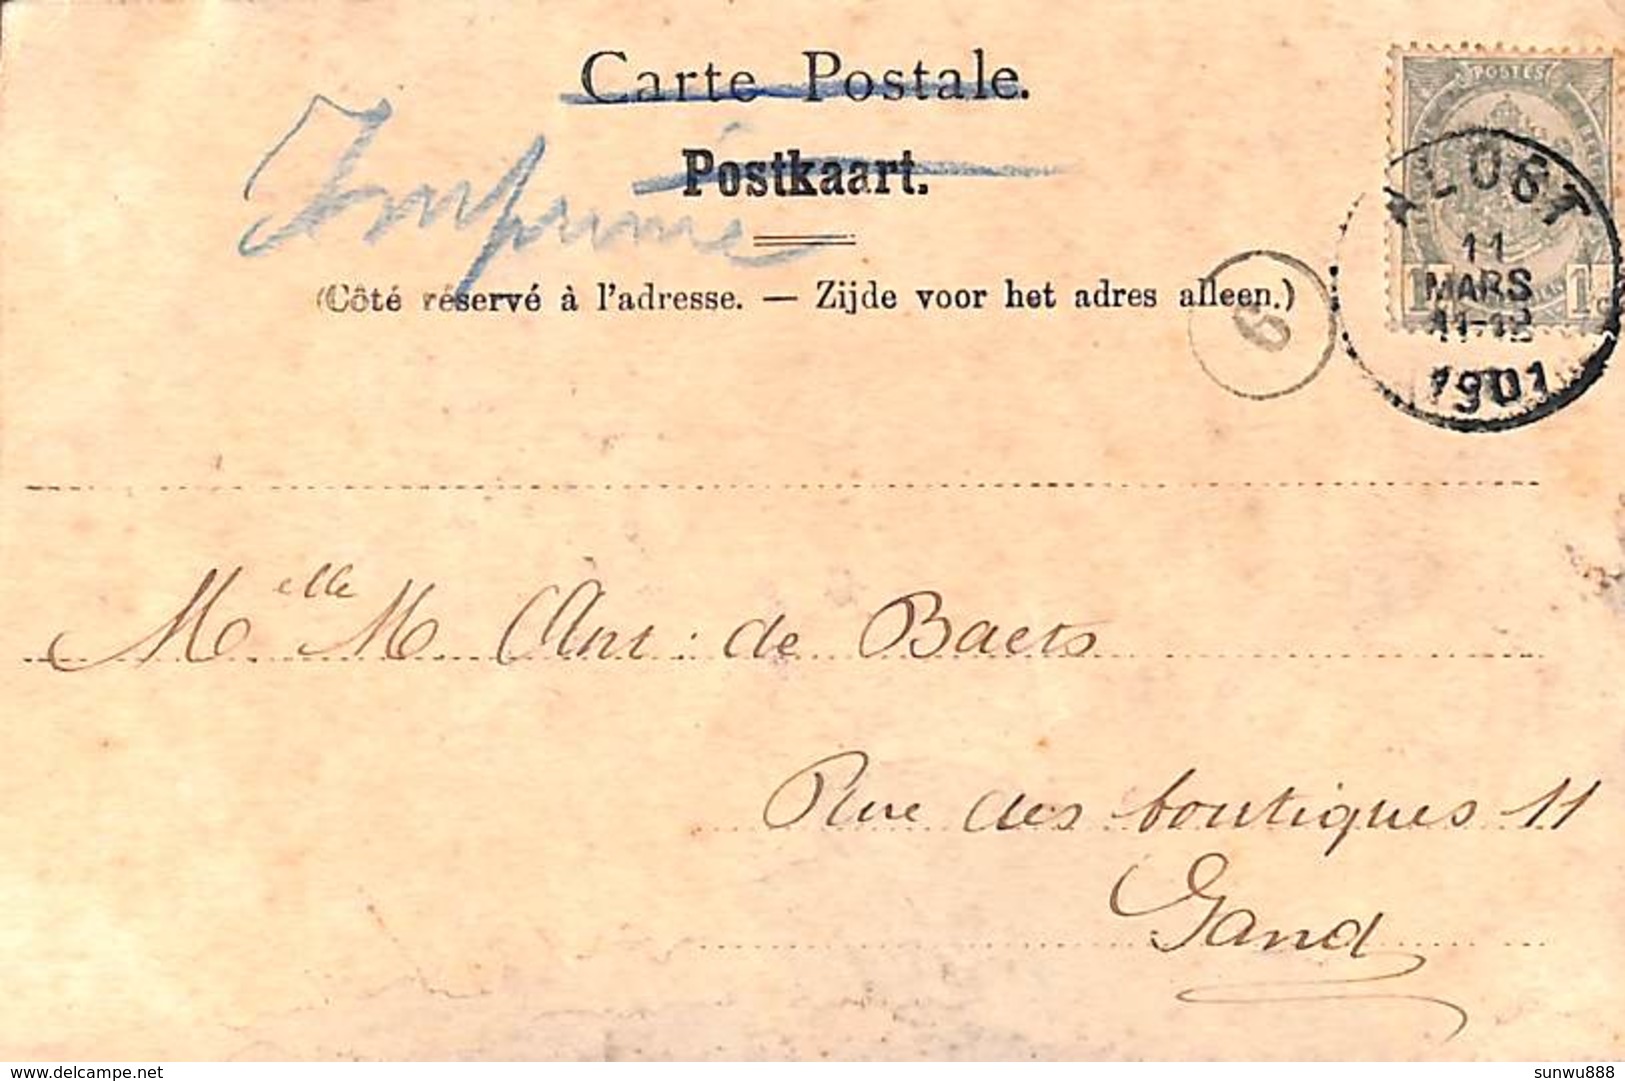 Carte Postale.
Postkaart.
Imprimé
(Côté réservé à l'adresse. — Zijde voor het adres alleen.)
POSTES
1 1
ALOST
11
MARS
11-12
1901
6
Melle M Ant: de Baets
Rue des boutiques 11
Gand
www.delcampe.net
sunwu888